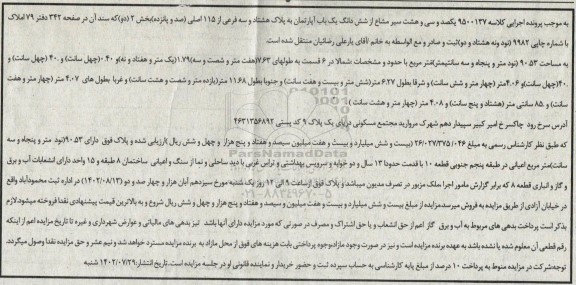 به موجب پرونده اجرایی کلاسه ۹۵۰۰۱۳۷ یکصد و سی و هشت سیر مشاع از شش دانگ یک باب آپارتمان به پلاک هشتاد و سه فرعی از ۱۱۵ اصلی (صد و پانزده)بخش ۲ (دو)که سند آن در صفحه ۳۴۲ دفتر ۷۹ املاک
با شماره چاپی ۹۹۸۲ (نود ونه هشتاد و دو)ثبت و صادر و مع الواسطه به خانم /آقای یارعلی رضائیان منتقل شده است.
به مساحت ۹۰.۵۳ (نود متر و پنجاه و سه سانتیمتر)متر مربع با حدود و مشخصات شمالا در ۶ قسمت به طولهای ۷.۶۲(هفت متر و شصت و سه)۱.۷۹(یک متر و هفتاد و نه)و ۰.۴۰(چهل سانت)و ۴۰.
.۴۰(چهل سانت)و ۴.۰۶ متر (چهار متر و شش سانت) و شرقا بطول ۶.۲۷ متر(شش متر و بیست و هفت سانت) و جنوبا بطول ۱۱.۶۸ متر(یازده متر و شصت و هشت سانت) و غربا بطول های ۴.۰۷ متر (چهار متر و هفت
سانت) و ۸۵. سانتی متر (هشتاد و پنج سانت) و ۴.۰۸ متر (چهار متر و هشت سانت )
آدرس سرخ رود چاکسر خ امیر کبیر سپیدار دهم شهرک مروارید مجتمع مسکونی دریای یک پلاک ۹ کد پستی ۴۶۳۱۳۵۶۸۹۲
که طبق نظر کارشناس رسمی به مبلغ ۲۶۰۲۷۳۷۵۱۰۴۶ (بیست و شش میلیارد و بیست و هفت میلیون سیصد و هفتاد و پنج هزار و چهل و شش ریال )ارزیابی شده و پلاک فوق دارای ۹۰.۵۳(نود متر و پنجاه و سه
سانت)متر مربع اعیانی در طبقه پنجم جنوبی قطعه ۱۰ با قدمت حدودا ۱۳ سال و دو خوابه و سرویس بهداشتی و تراس غربی با دید ساحلی و نما از سنگ و اعیانی ساختمان ۸ طبقه و ۱۵ واحد دارای انشعابات آب و برق
و گاز و انباری قطعه ۸ که برابر گزارش مامور اجرا ملک مزبور در تصرف مدیون میباشد و پلاک فوق ازساعت ۹ الی ۱۲ روز یک شنبه مورخ سیزدهم آبان هزار و چهار صد و دو (۱۴۰۲/۰۸/۱۳) در اداره ثبت محمودآباد واقع
در خیابان آزادی از طریق مزایده به فروش میرسدمزایده از مبلغ بیست و شش میلیارد و بیست و هفت میلیون و سیصد و هفتاد و پنج هزار و چهل و شش ریال شروع و به بالاترین قیمت پیشنهادی نقدا فروخته میشود.لازم
بذکر است پرداخت بدهی های مربوط به آب و برق گاز اعم از حق انشعاب و یا حق اشتراک و مصرف در صورتی که مورد مزایده دارای آنها باشد نیز بدهی های مالیاتی و عوارض شهرداری و غیره تا تاریخ مزایده اعم از اینکه
رقم قطعی آن معلوم شده یا نشده باشد به عهده برنده مزایده است و نیز در صورت وجود مازادوجوه پرداختی بابت هزینه های فوق از محل مازاد به برنده مزایده مسترد خواهد شد و نیم عشر و حق مزایده نقدا وصول میگردد.
توجه:شرکت در مزایده منوط به پرداخت ۱۰ درصد از مبلغ پایه کارشناسی به حساب سپرده ثبت و حضور خریدار و نماینده قانونی او در جلسه مزایده است.تاریخ انتشار:۱۴۰۲/۰۷/۲۹ شنبه